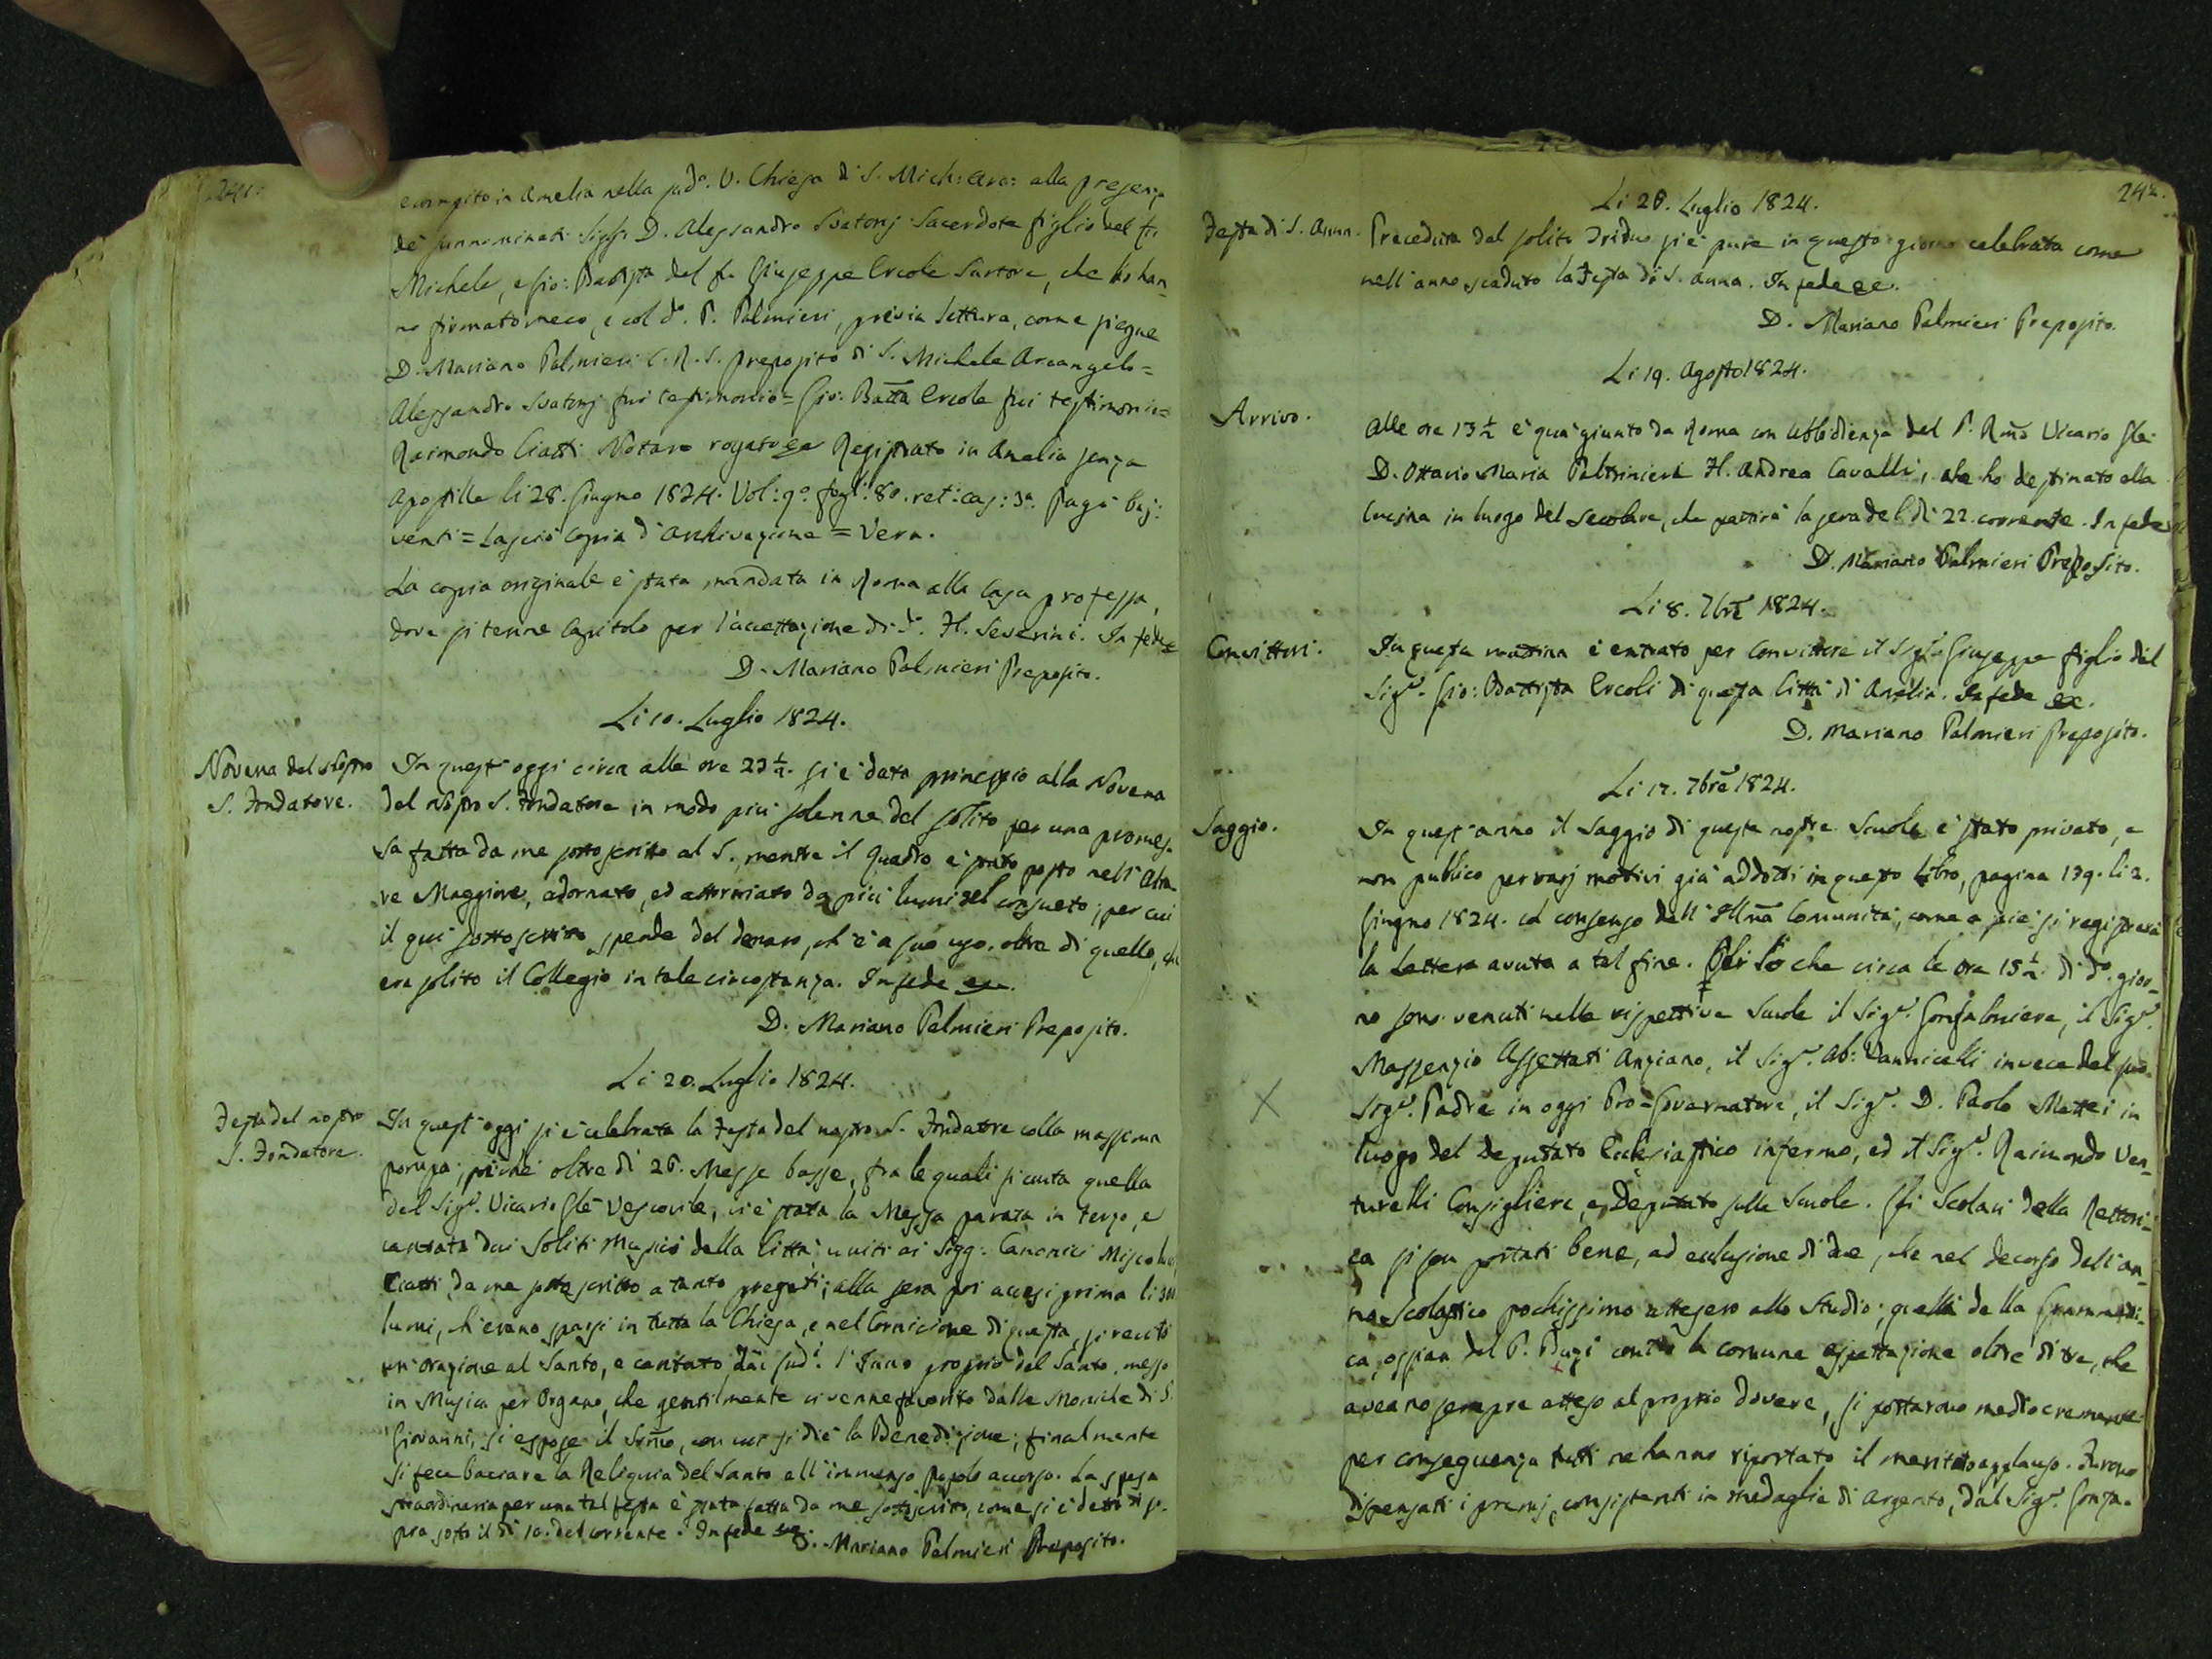 241.
e compito in Amelia nella sud.a V. Chiesa di S. Mich: Arc: alla presenza
de' sunnominati Sigg.i D. Alessandro Svatonj Sacerdote figlio del fù
Michele, e Gio: Battista del fu Giuseppe Ercole Sartore, che lo han-
no firmato meco, e col d.o P. Palmieri, previa lettura, come siegue
D. Mariano Palmieri C.R.S. Preposito di S. Michele Arcangelo =
Alessandro Svatonj fui testimonio = Gio: Batta Ercole fui testimonio =
Raimondo Ciatti Notaro rogato &c. Registrato in Amelia senza
Apostille li 28. Giugno 1824. Vol: 9.o fogl: 80. ret: cas: 3.a Pagò baj:
venti = Lasciò copia d'archiviazione = Vera.
La copia originale è stata mandata in Roma alla Casa professa,
dove si tenne Capitolo per l'accettazione di d.o H. Severini. In fede &c
D. Mariano Palmieri Preposito.
Li 10. Luglio 1824.
Novena del nostro
S. Fondatore.
In quest'oggi circa alle ore 23 1/2. si è dato principio alla Novena
del nostro S. Fondatore in modo più solenne del solito per una promes-
sa fatta da me sottoscritto al S., mentre il Quadro è stato posto nell'Alta-
re Maggiore, adornato, ed attorniato da più lumi del consueto; per cui
il qui sottoscritto spende del denaro, ch'è a suo uso, oltre di quello, che
era solito il Collegio in tale circostanza. In fede &c.
D. Mariano Palmieri Preposito.
Li 20. Luglio 1824.
Festa del nostro
S. Fondatore.
In quest'oggi si è celebrata la Festa del nostro S. Fondatore colla massima
pompa; poiché oltre di 26. Messe basse, fra le quali si conta quella
del Sig.r Vicario Gle Vescovile, vi è stata la Messa parata in terzo, e
cantata dai Soliti Musici della Città, uniti ai Sigg: Canonici
Ciatti da me sottoscritto a tanto pregati; alla sera poi accesi prima li
lumi, ch'erano sparsi in tutta la Chiesa, e nel Cornicione di questa, si recitò
un'orazione al Santo, e cantato dai sud.i l'Inno proprio del Santo, messo
in Musica per Organo, che gentilmente ci venne favorito dalle Monache di S.
Giovanni, si espose il Smo, con cui si diè la Benedizione; finalmente
si fece baciare la Reliquia del Santo all'immenso Popolo accorso. La spesa
straordinaria per una tal festa è stata fatta da me sottoscritto, come si è detto di so-
pra sotto il dì 10. del corrente. In fede &c. Mariano Palmieri Preposito.
242.
Li 26. Luglio 1824.
Festa di S. Anna.
Preceduta dal solito Triduo si è pure in questo giorno celebrata come
nell'anno scaduto la Festa di S. Anna. In fede &c.
D. Mariano Palmieri Preposito.
Li 19. Agosto 1824.
Arrivo.
Alle ore 13 1/2 è quà giunto da Roma con ubbidienza del P. Rmo Vicario Gle
D. Ottavio Maria Paltrinieri H. Andrea Cavalli, che ho destinato alla
Cucina in luogo del Secolare, che partirà la sera del dì 22. corrente. In fede
D. Mariano Palmieri Preposito.
Li 8. 7bre 1824.
Convittori.
In questa mattina è entrato per Convittore il Sig.r Giuseppe figlio del
Sig.r Gio: Battista Ercoli di questa Città di Amelia. In fede &c.
D. Mariano Palmieri Preposito.
Li 17. 7bre 1824.
Saggio.
In quest'anno il Saggio di queste nostre Scuole è stato privato, e
non pubblico per varj motivi già addotti in questo Libro, pagina 139. li 2.
Giugno 1824. col consenso dell'Illma Comunità, come a piè si registrerà
la Lettera avuta a tal fine. Per lo che circa le ore 15 1/2. di d.o gior-
no sono venuti nelle rispettive Scuole il Sig.r Gonfaloniere, il Sig.r
Massenzio Assettati Anziano, il Sig.r Ab: Vannicelli invece del suo
Sig.r Padre in oggi Pro-Governatore, il Sig.r D. Paolo Mattei in
luogo del Deputato Ecclesiastico infermo, ed il Sig.r Raimondo Ven-
turelli Consigliere, e Deputato sulle Scuole. Gli Scolari della Rettori-
ca si son portati bene, ad esclusione di due, che nel decorso dell'an-
no Scolastico pochissimo attesero allo Studio; quelli della Grammati-
ca, ossian del P. Bugi contro la comune espettazione oltre di tre, che
aveano sempre atteso al proprio dovere, si portarono mediocremente
per conseguenza tutti ne hanno riportato il meritato applauso. Furono
dispensati i premj, consistenti in medaglie di argento, dal Sig.r Gonfa-